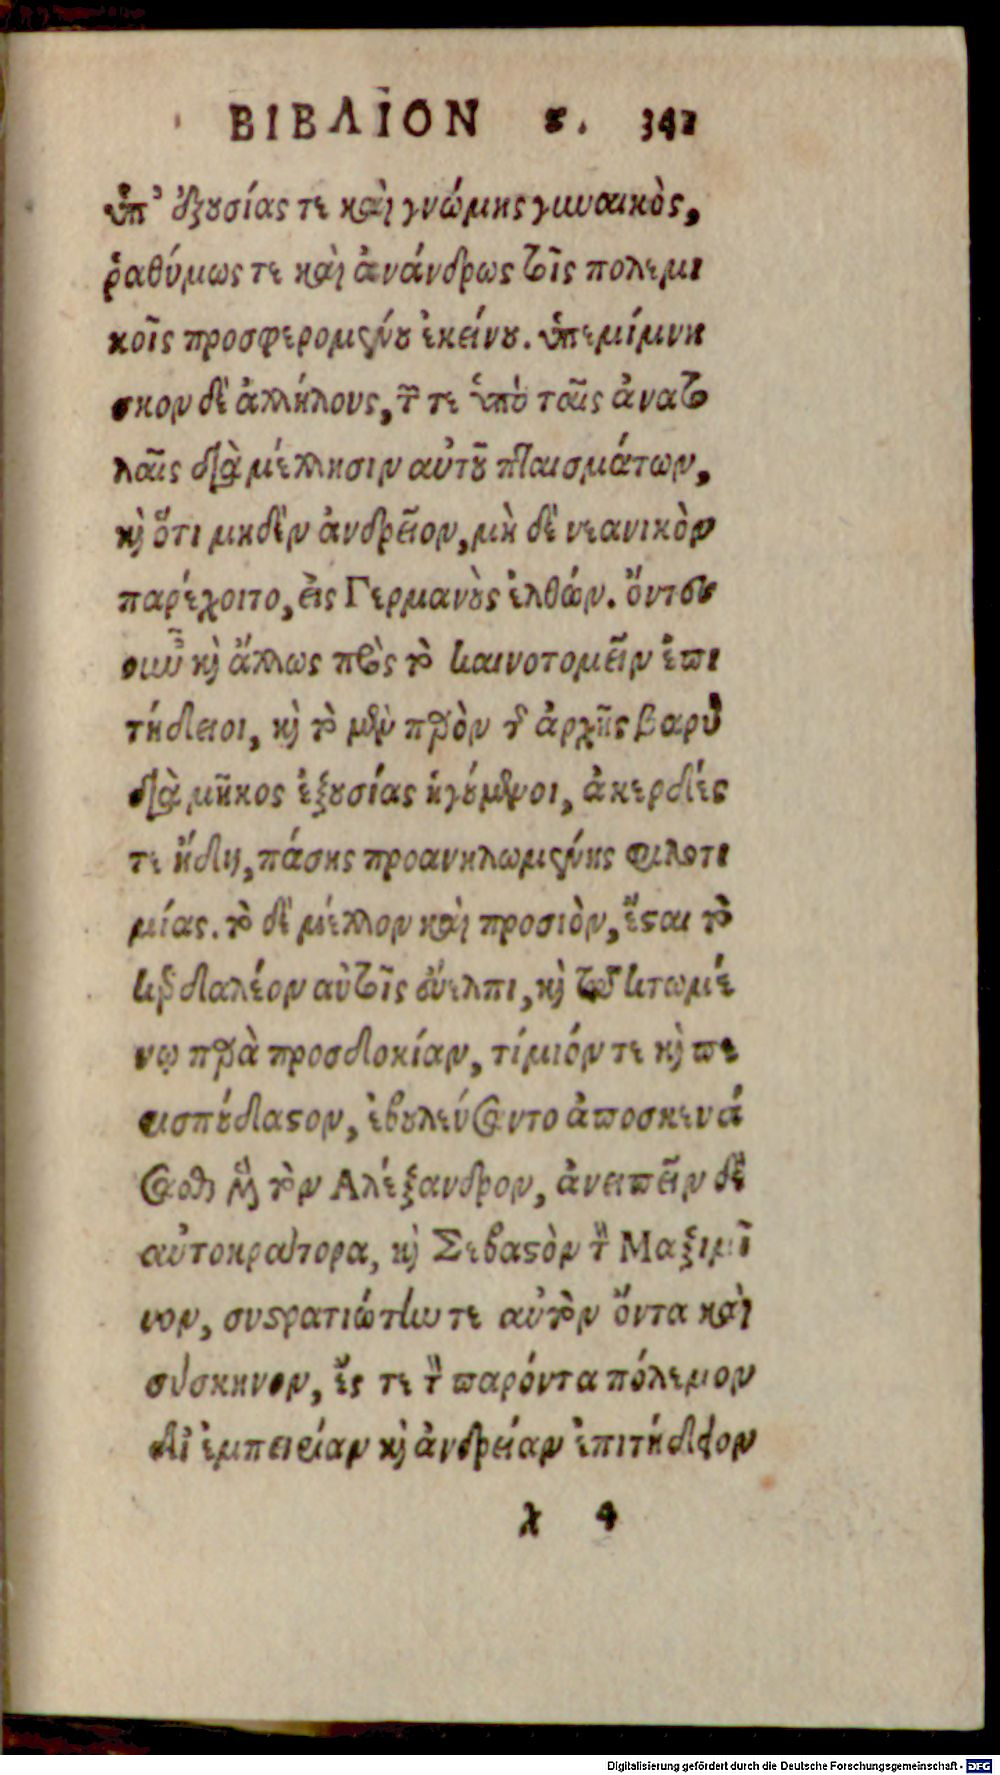 ΒΙΒΛΙΟΝ ϛ. 343
ὑπ' ἐξουσίας τε καὶ γνώμης γυναικὸς,
ῥαθύμως τε καὶ ἀνάνδρως τοῖς πολεμι
κοῖς προσφερομένου ἐκείνου. ὑπεμίμνη
σκον δὲ ἀλλήλους, τῶν τε ὑπὸ ταῖς ἀνατο
λαῖς διὰ μέλλησιν αὐτοῦ πταισμάτων,
καὶ ὅτι μηδὲν ἀνδρεῖον, μὴ δὲ νεανικὸν
παρέχοιτο, εἰς Γερμανοὺς ἐλθών. ὄντες
οὖν καὶ ἄλλως πρὸς τὸ καινοτομεῖν ἐπι
τήδειοι, καὶ τὸ μὲν παρὸν τῆς ἀρχῆς βαρὺ
διὰ μῆκος ἐξουσίας ἡγούμενοι, ἀκερδές
τε ἤδη, πάσης προανηλωμένης φιλοτι
μίας. τὸ δὲ μέλλον καὶ προσιὸν, ἔς αι τὸ
κερδαλέον αὐτοῖς εὔελπι, καὶ τῷ κτωμέ
νῳ παρὰ προσδοκίαν, τίμιόν τε καὶ πε
ρισπούδαστον, ἐβουλεύσαντο ἀποσκευά
σασθαι μὲν τὸν Αλέξανδρον, ἀνειπεῖν δὲ
αὐτοκράτορα, καὶ Σεβαστὸν τὸν Μαξιμῖ
νον, συστρατιώτην τε αὐτὸν ὄντα καὶ
σύσκηνον, ἔς τε τὸν παρόντα πόλεμον
δι' ἐμπειρίαν καὶ ἀνδρείαν ἐπιτήδειον
χ 4
Digitalisierung gefördert durch die Deutsche Forschungsgemeinschaft - DFG